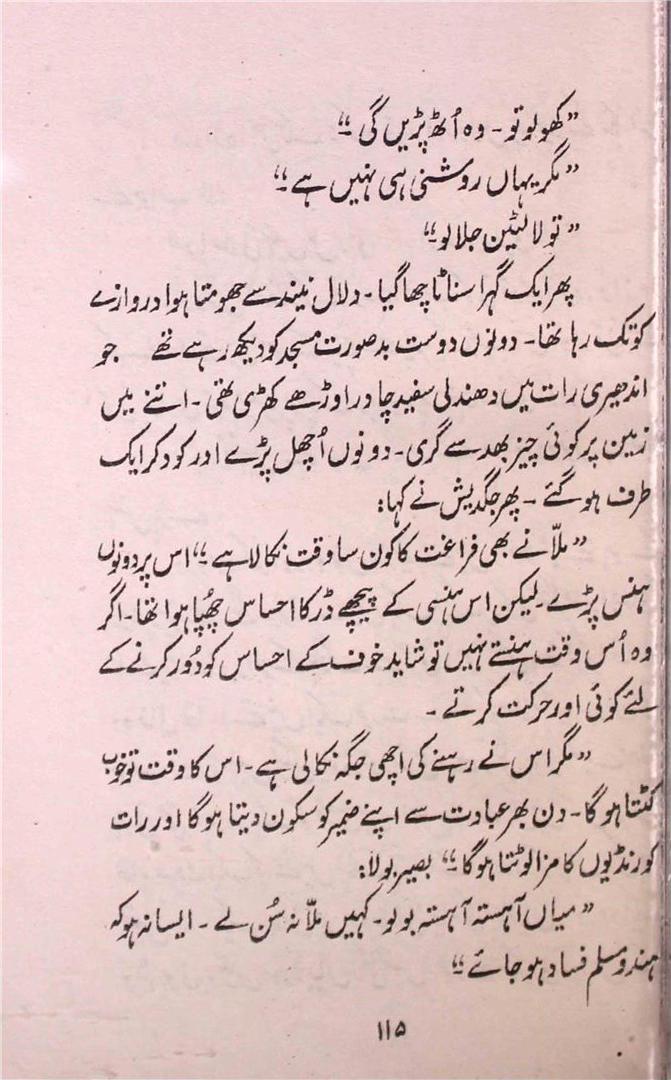 ”کھولو تو۔ وہ اُٹھ پڑیں گی۔“
”مگر یہاں روشنی ہی نہیں ہے۔“
”تو لالٹین جلا لو۔“
پھر ایک گہرا سناٹا چھا گیا۔ دلال نیند سے جھومتا ہوا دروازے
کو تک رہا تھا۔ دونوں دوست بدصورت مسجد کو دیکھ رہے تھے جو
اندھیری رات میں دھندلی سفید چادر اوڑھے کھڑی تھی۔ اتنے میں
زمین پر کوئی چیز بھد سے گری۔ دونوں اُچھل پڑے اور کود کر ایک
طرف ہو گئے۔ پھر جگدیش نے کہا:
”ملاّ نے بھی فراغت کا کون سا وقت نکالا ہے۔“ اس پر دونوں
ہنس پڑے۔ لیکن اس ہنسی کے پیچھے ڈر کا احساس چھُپا ہوا تھا۔ اگر
وہ اُس وقت ہنستے نہیں تو شاید خوف کے احساس کو دُور کرنے کے
لئے کوئی اور حرکت کرتے۔
”مگر اس نے رہنے کی اچھی جگہ نکالی ہے۔ اس کا وقت تو خوب
کٹتا ہو گا۔ دن بھر عبادت سے اپنے ضمیر کو سکون دیتا ہو گا اور رات
کو رنڈیوں کا مزا لوٹتا ہو گا۔“ بصیر بولا:
”میاں آہستہ آہستہ بولو۔ کہیں ملاّ نہ سُن لے۔ ایسا نہ ہو کہ
ہندو مسلم فساد ہو جائے۔“
۱۱۵